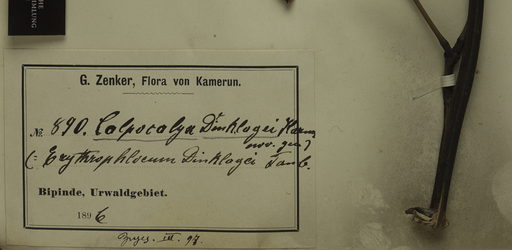 MLUNG
G. Zenker, Flora von Kamerun.
№ 890. Calpocalyx Dinklagei Harms
nov. gen)
(= Erythrophloeum Dinklagei Taub.
Bipinde, Urwaldgebiet.
1896
III. 97.